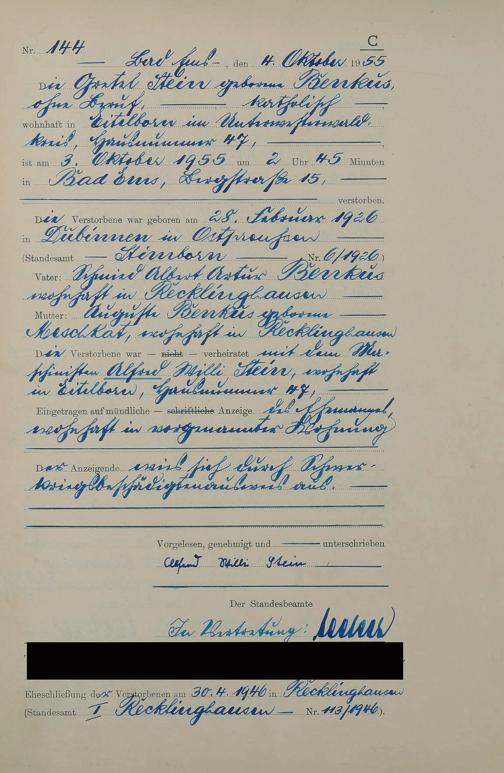 C
Nr. 144
Bad Ems, den 4. Oktober 1955
Die Gretel Stein geborene Benkus,
ohne Beruf, katholisch
wohnhaft in Eitelborn im Unterwesterwald-
kreis, Hausnummer 47,
ist am 3. Oktober 1955 um 2 Uhr 45 Minuten
in Bad Ems, Bergstraße 15,
verstorben.
Die Verstorbene war geboren am 28. Februar 1926
in Dubinnen in Ostpreußen
(Standesamt Nr. 6/1926)
Vater: Schmied Albert Artur Benkus
wohnhaft in Recklinghausen
Mutter: Auguste Benkus geborene
Meschkat, wohnhaft in Recklinghausen
Die Verstorbene war — nicht — verheiratet mit dem Ma-
schinisten Alfred Willi Stein, wohnhaft
in Eitelborn, Hausnummer 47,
Eingetragen auf mündliche — schriftliche Anzeige des Ehemannes,
wohnhaft in vorgenannter Wohnung
Der Anzeigende wies sich durch Schwer-
kriegsbeschädigtenausweis aus.
Vorgelesen, genehmigt und unterschrieben
Alfred Willi Stein
Der Standesbeamte
In Vertretung:
Eheschließung der Verstorbenen am 30.4.1946 in Recklinghausen
(Standesamt I Recklinghausen — Nr. 113/1946).